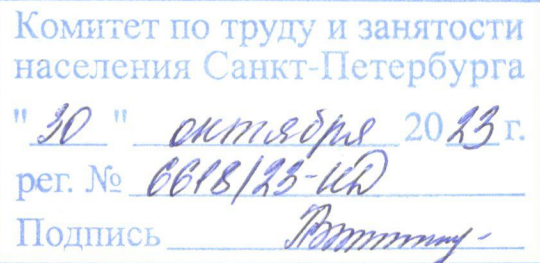 Комитет по труду и занятости
населения Санкт-Петербурга
"30" октября 2023 г.
рег. № 6618/23-КД
Подпись